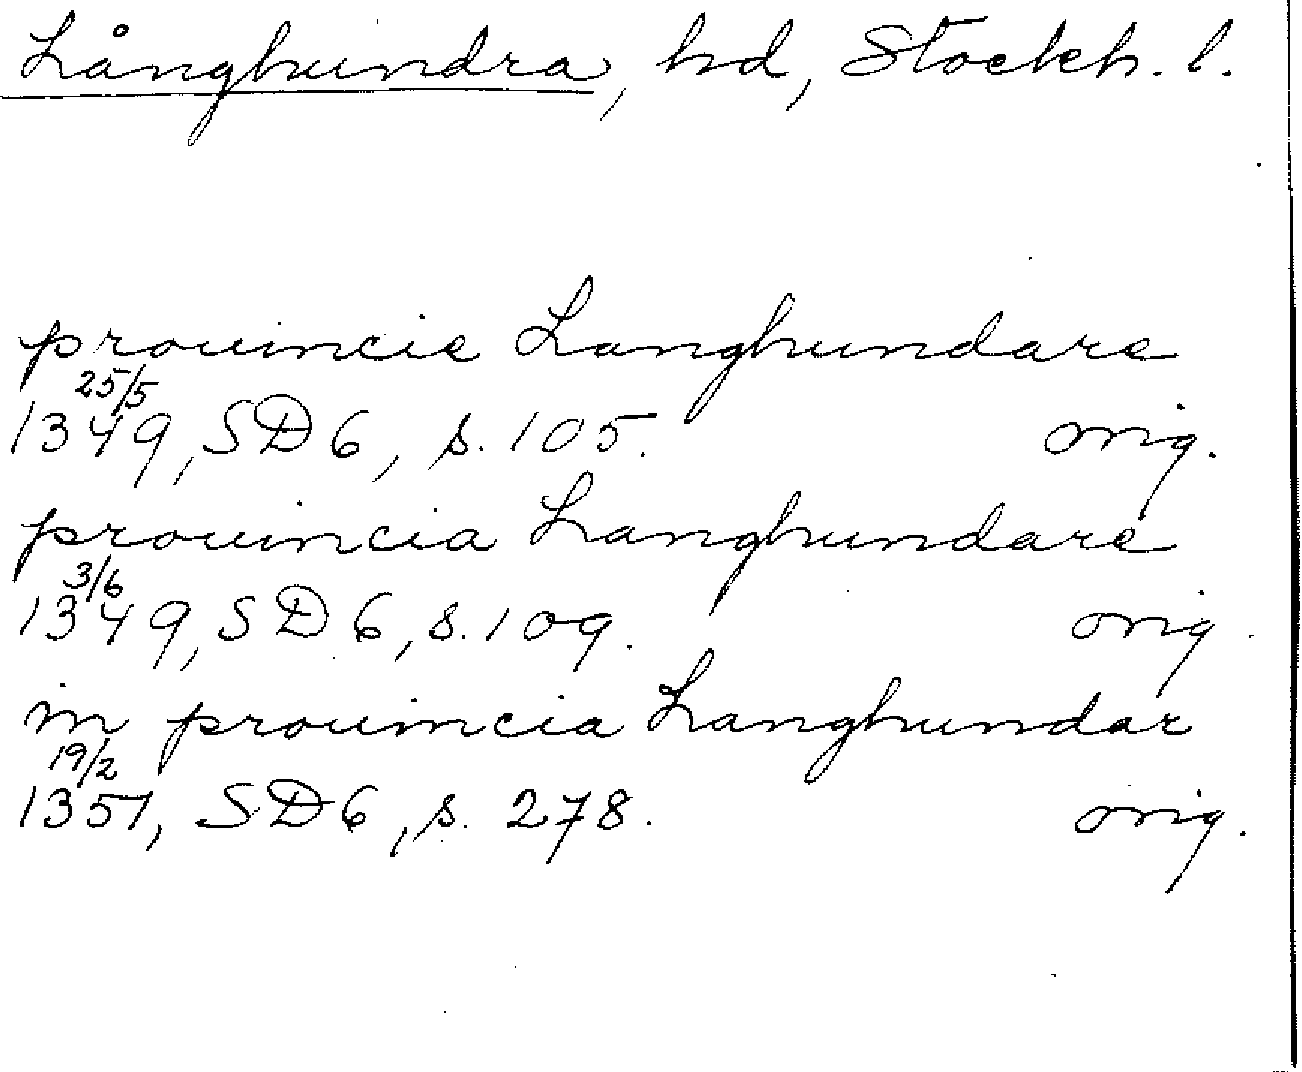 Långhundra, hd, Stockh. l.
prouincie Langhundare
25/5
1349, SD 6, s. 105. orig.
prouincia Langhundare
3/6
1349, SD 6, s. 109. orig.
in prouincia Langhundar
19/2
1351, SD 6, s. 278. orig.